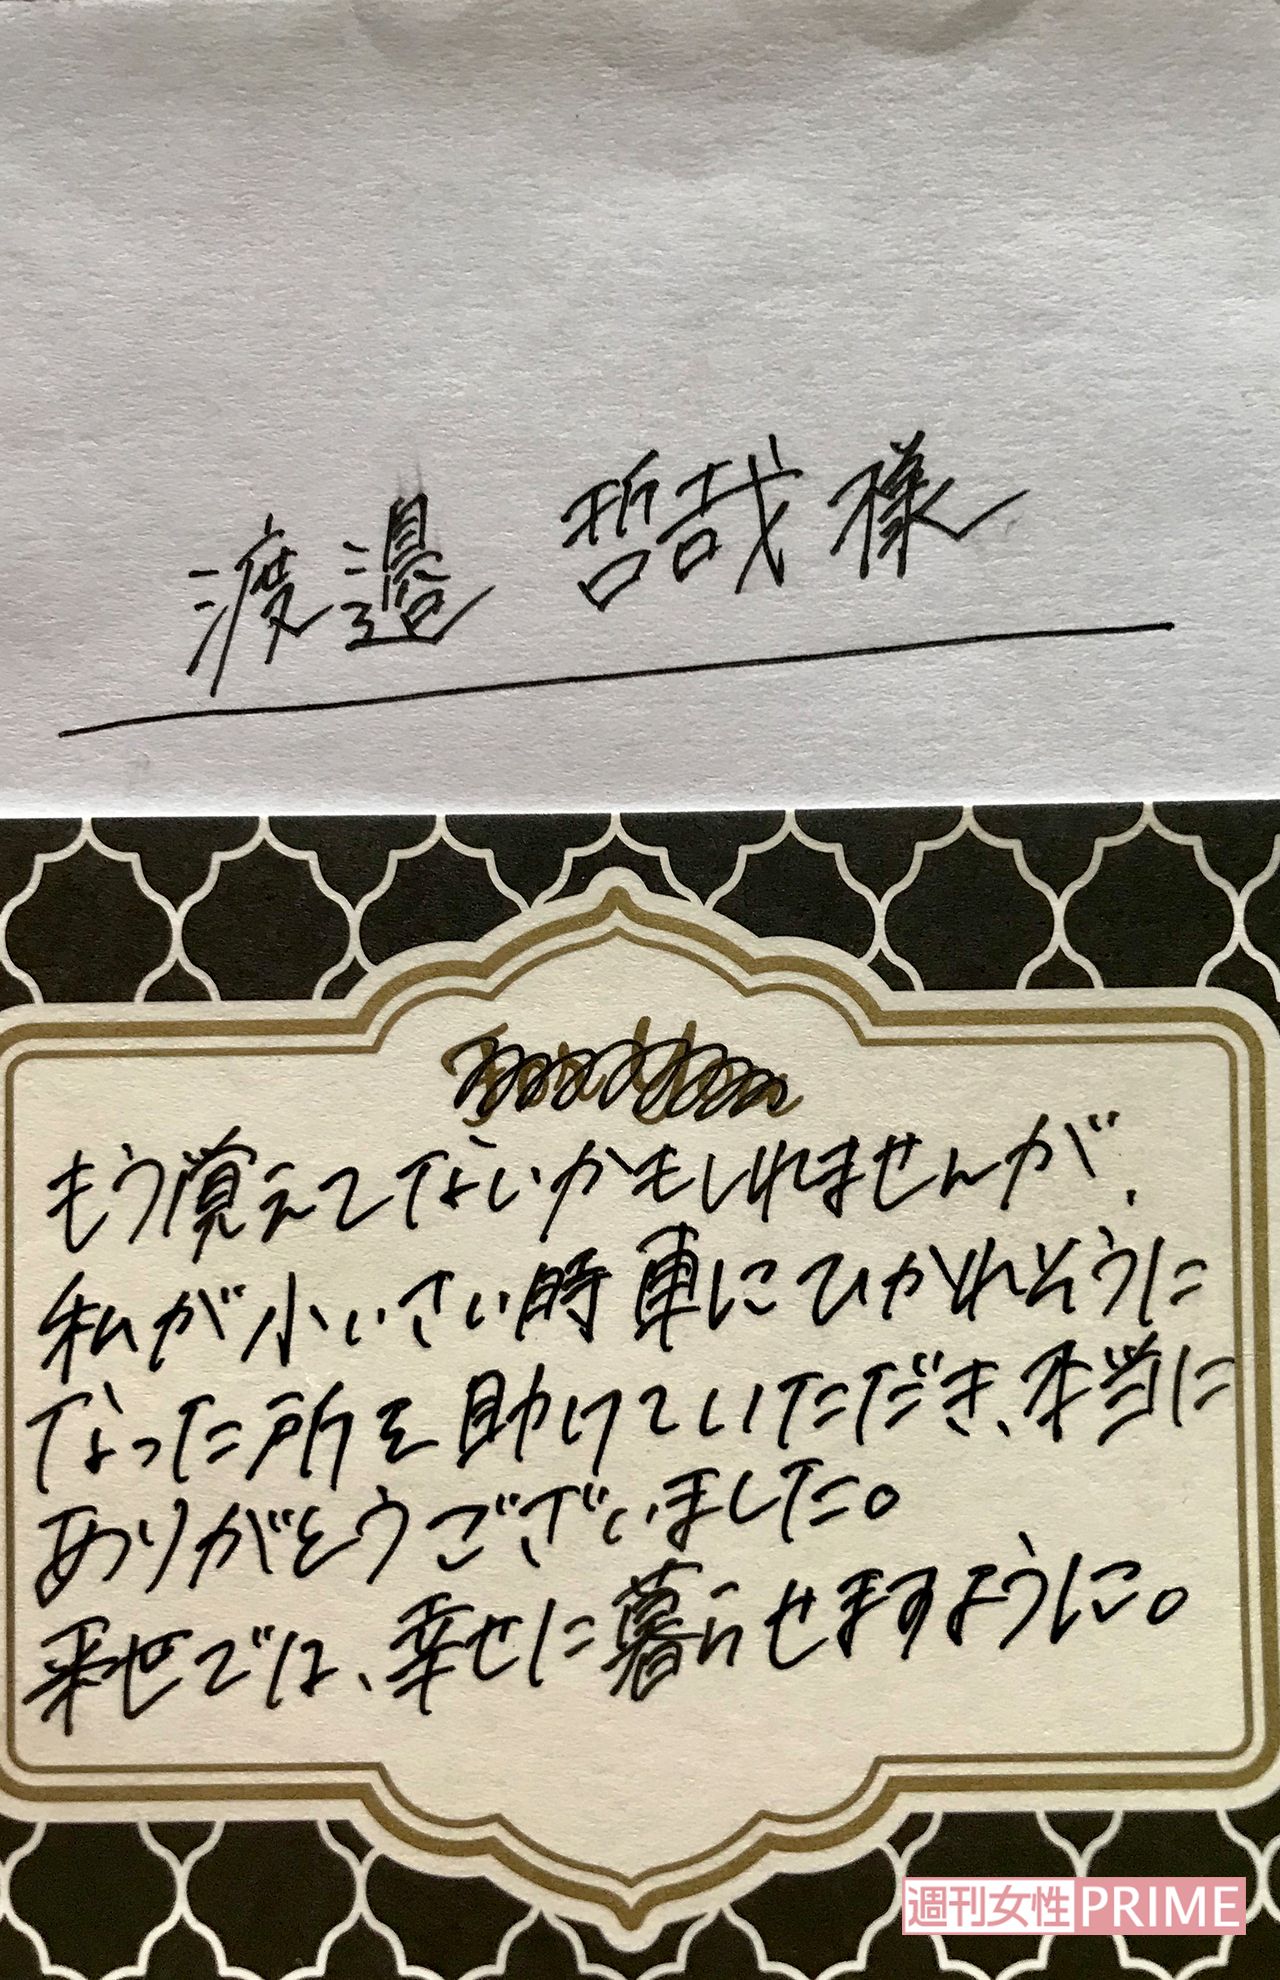 渡邉 哲哉様
もう覚えてないかもしれませんが、
私が小いさい時車にひかれそうに
なった所を助けていただき、本当に
ありがとうございました。
来世では、幸せに暮らせますように。
週刊女性PRIME